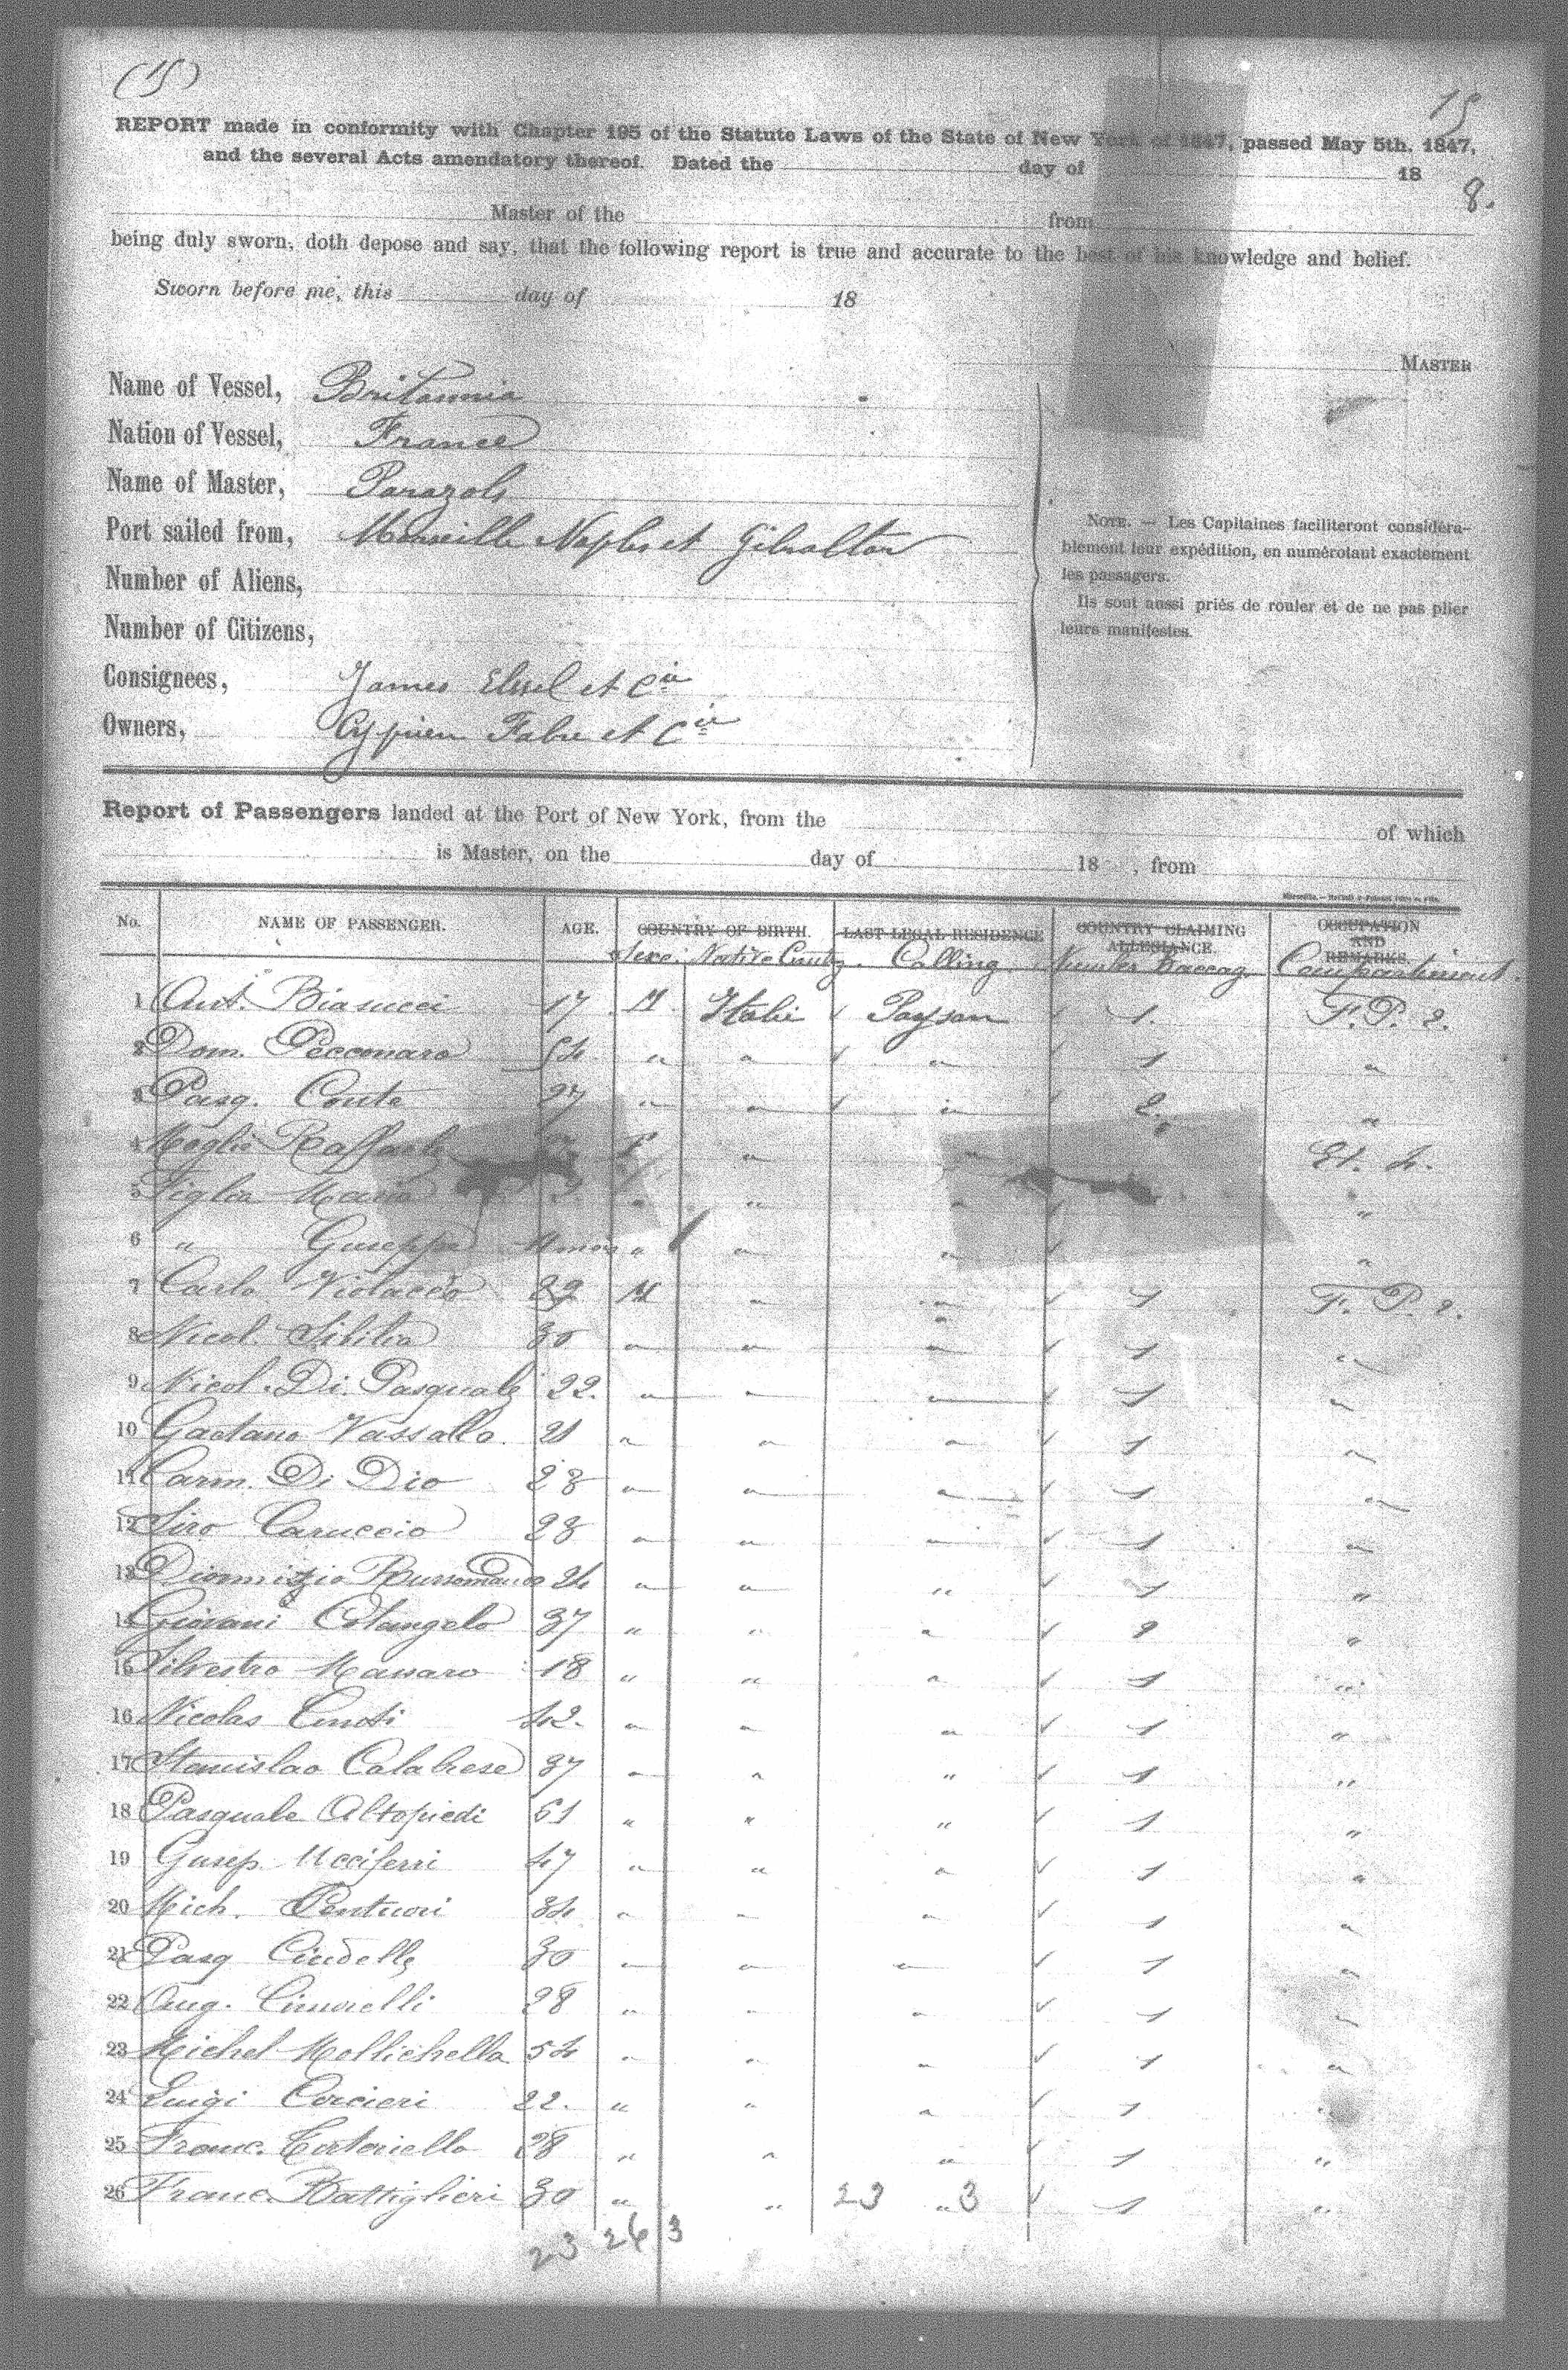 (15)
15
REPORT made in conformity with Chapter 195 of the Statute Laws of the State of New York of 1847, passed May 5th, 1847,
and the several Acts amendatory thereof. Dated the day of 18
8.
Master of the from
being duly sworn, doth depose and say, that the following report is true and accurate to the best of his knowledge and belief.
Sworn before me, this day of 18
MASTER
Name of Vessel, Britannia
Nation of Vessel, France
Name of Master, Parazols
Port sailed from, Marseille Naples et Gibraltar
Number of Aliens,
Number of Citizens,
Consignees, James Elwel et Cie
Owners, Cyprien Fabre et Cie
NOTE. — Les Capitaines faciliteront considéra-
blement leur expédition, en numérotant exactement
les passagers.
Ils sont aussi priés de rouler et de ne pas plier
leurs manifestes.
Report of Passengers landed at the Port of New York, from the of which
is Master, on the day of 18 , from
No. NAME OF PASSENGER. AGE. COUNTRY OF BIRTH. LAST LEGAL RESIDENCE COUNTRY CLAIMING ALLEGIANCE. OCCUPATION AND REMARKS.
Sexe. Native Country. Calling. Number Baccag. Compartiment.
1 Ant. Biasucci 17 M Italie Paysan 1. F. P. 2.
2 Dom. 54 " " " 1 "
3 Pasq. Conte 27 " " " 2. "
4 Moglie Raffaele F " " Et. 4.
5 Figlia Maria " " " "
6 " Giuseppa mois " " " "
7 Carlo Violacco 32 M " " 1 F. P. 2.
8 Nicol. Sibilia 30 " " " 1 "
9 Nicol. Di Pasquale 22. " " " 1 "
10 Gaetano Vassallo. 21 " " " 1 "
11 Carm. Di Dio 28 " " " 1 "
12 Siro Caruccio 28 " " " 1 "
13 Dionnizio Russomanno 24 " " " 1 "
14 Giovani Colangelo 37 " " " 2 "
15 Silvestro Massaro 18 " " " 1 "
16 Nicolas 42. " " " 1 "
17 Stanislao Calabrese 37 " " " 1 "
18 Pasquale Altopiedi 51 " " " 1 "
19 Gusep. Ucciferri 47 " " " 1 "
20 Mich. Pentuori 34 " " " 1 "
21 Pasq 30 " " " 1 "
22 Ang. Cimorelli 28 " " " 1 "
23 Michel Mollichella 54 " " " 1 "
24 Luigi Corcieri 22. " " " 1 "
25 Franc. Tortoriello 28 " " " 1 "
26 Franc. Battiglieri 30 " " 23 " 3 1 "
23 26 3